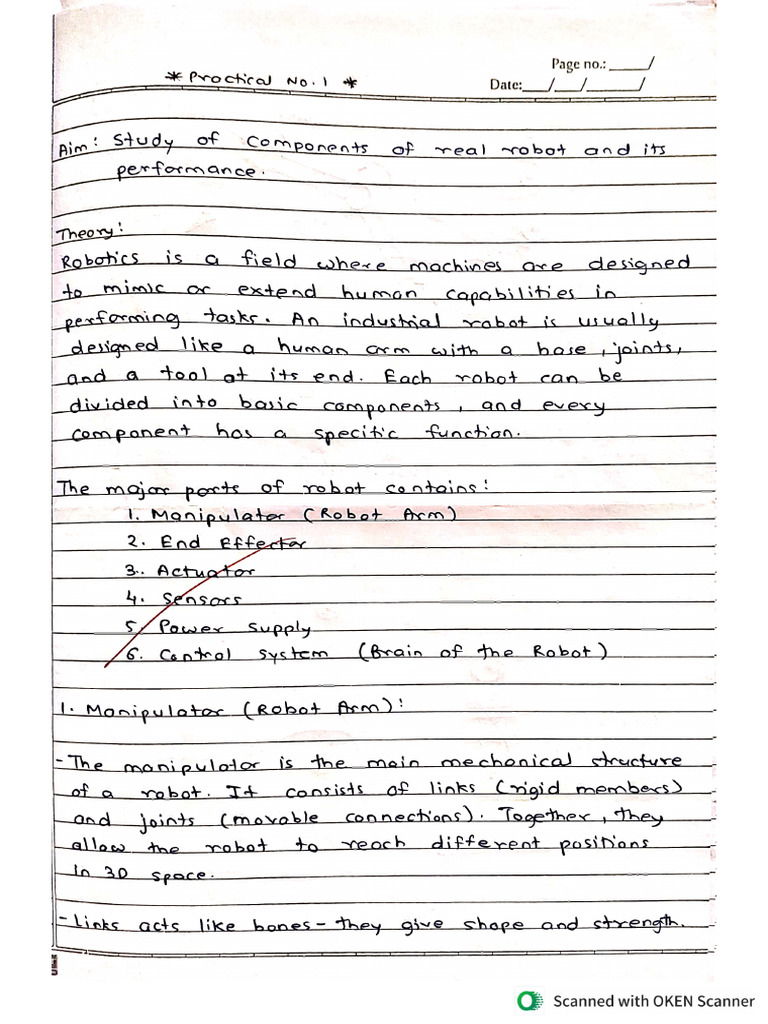 Page no.: ___/
* Practical No. 1 *
Date:___/___/______/
Aim: Study of components of real robot and its
performance.
Theory:
Robotics is a field where machines are designed
to mimic or extend human capabilities in
performing tasks. An industrial robot is usually
designed like a human arm with a base, joints,
and a tool at its end. Each robot can be
divided into basic components, and every
component has a specific function.
The major parts of robot contains:
1. Manipulator (Robot Arm)
2. End Effector
3. Actuator
4. Sensors
5. Power supply
6. Control system (Brain of the Robot)
1. Manipulator (Robot Arm):
- The manipulator is the main mechanical structure
of a robot. It consists of links (rigid members)
and joints (movable connections). Together, they
allow the robot to reach different positions
in 3D space.
- Links acts like bones - they give shape and strength.
Scanned with OKEN Scanner